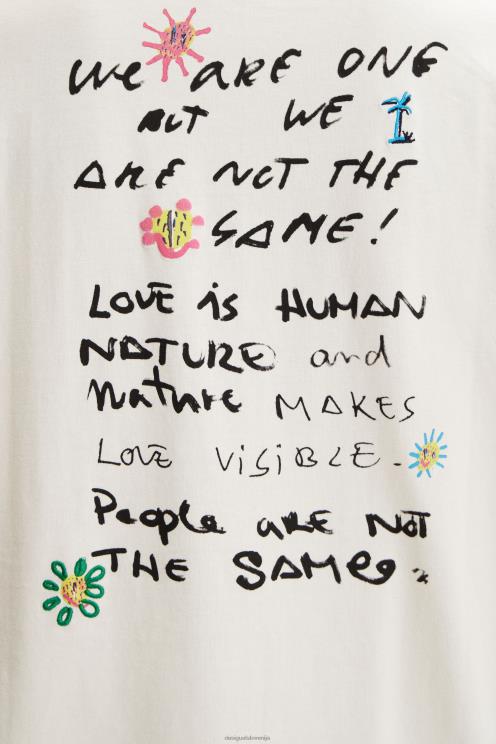 we ARE ONE
BUT WE
ARE NOT THE
SAME!
LOVE is HUMAN
NATURE and
nature MAKES
LOVE VISIBLE.
People ARE NOT
THE SAME
desigualslovenija